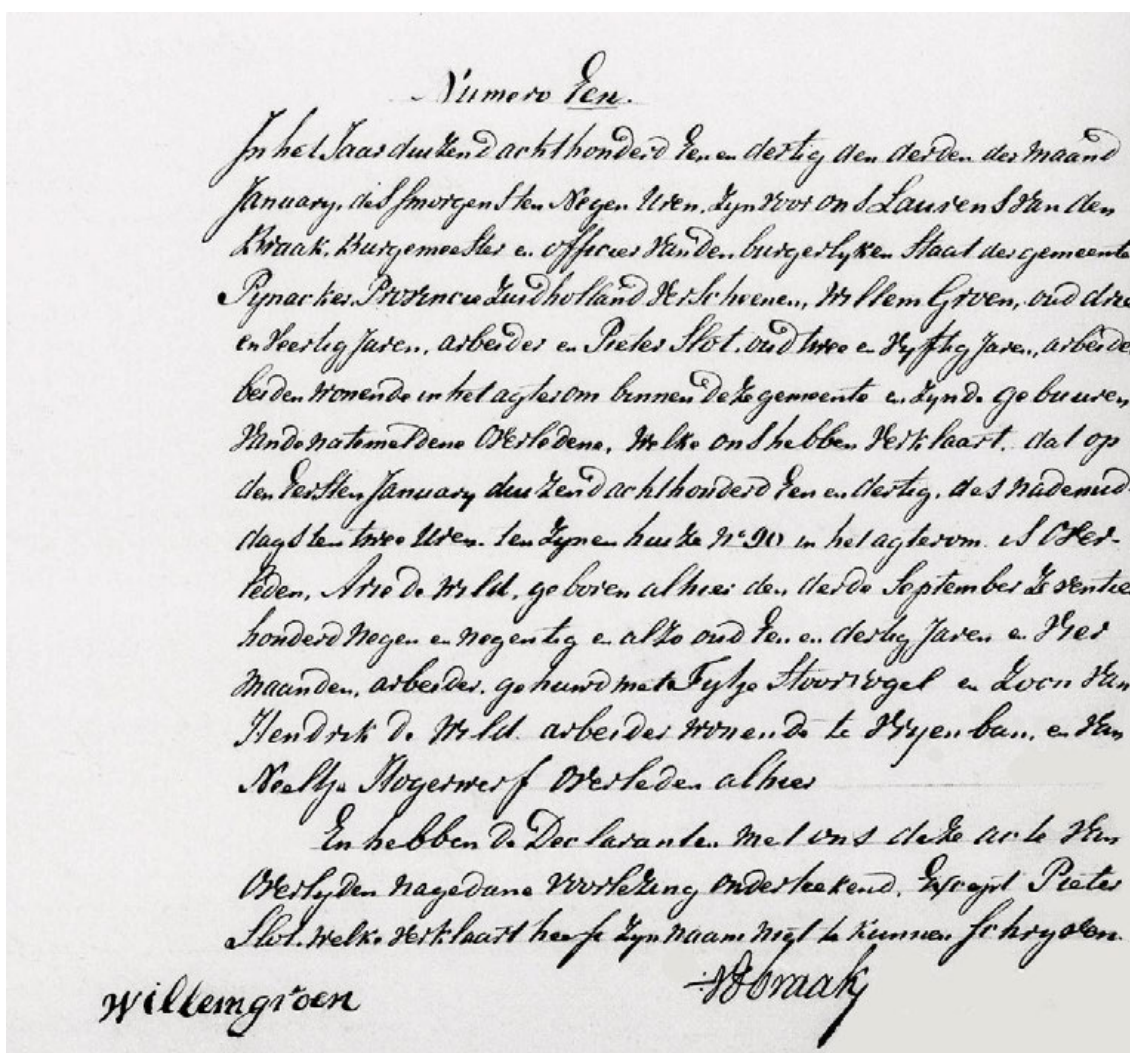 Numero Een.
In het Jaar duizend achthonderd Een en dertig den derden der maand
January, des smorgens ten Negen Uren, Zyn voor ons Laurens van den
Braak, Burgemeester en officier van den burgerlyken Staat der gemeente
Pynacker, Provincie Zuidholland verschenen, Willem Groen, oud drie
en veertig Jaren, arbeider en Pieter Slot, oud twee en vyftig Jaren, arbeide
beiden wonende in het agterom binnen deze gemeente en Zynde gebuuren
van de natemeldene Overledene, welke ons hebben verklaart, dat op
den Eersten January duizend achthonderd Een en dertig, des nademid-
dags ten twee Uren ten Zynen huize No 90 in het agterom is Over-
leden, Arie de Wild, geboren alhier den derde September Zeventie
honderd negen en negentig en alzo oud Een en dertig Jaren en vier
maanden, arbeider, gehuwd met Fytje Stoorvogel en Zoon van
Hendrik de Wild arbeider wonende te Vryenban, en van
Neeltje Hogerwerf Overleden alhier
En hebben de Declaranten met ons deze acte van
Overlyden nagedane voorlezing onderteekend, Except Pieter
Slot, welke verklaart heeft Zyn naam nigt te kunnen schryven.
Willem groen
VdBraak